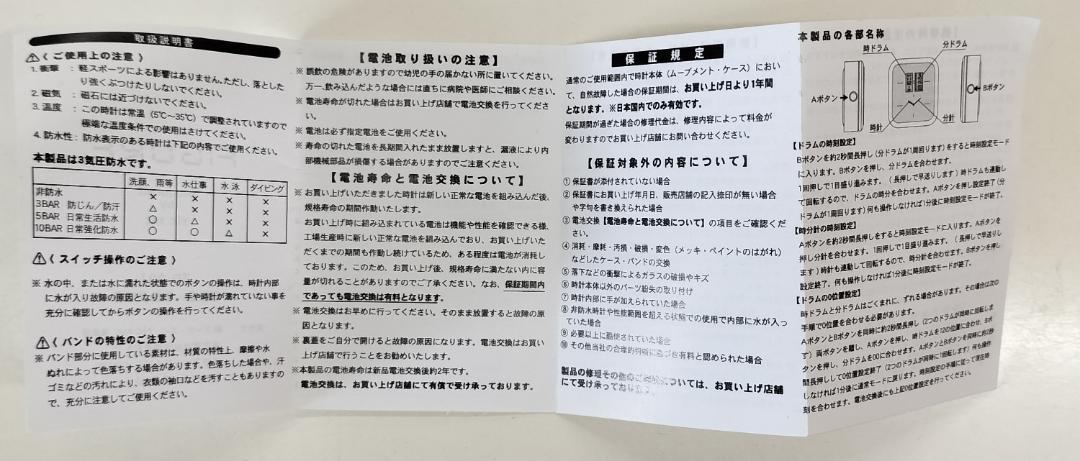 取扱説明書
⚠〈 ご使用上の注意 〉
1. 衝撃 : 軽スポーツによる影響はありません。ただし、落とした
り強くぶつけたりしないでください。
2. 磁気 : 磁石には近づけないでください。
3. 温度 : この時計は常温（5℃〜35℃）で調整されていますので
極端な温度条件での使用はさけてください。
4. 防水性 : 防水表示のある時計は下記の内容でご使用ください。
本製品は3気圧防水です。
洗顔、雨等 水仕事 水 泳 ダイビング
非防水 × × × ×
3BAR 防じん／防汗 △ × × ×
5BAR 日常生活防水 ○ △ × ×
10BAR 日常強化防水 ○ ○ △ ×
⚠〈 スイッチ操作のご注意 〉
※ 水の中、または水に濡れた状態でのボタンの操作は、時計内部
に水が入り故障の原因となります。手や時計が濡れていない事を
充分に確認してからボタンの操作を行ってください。
⚠〈 バンドの特性のご注意 〉
※ バンド部分に使用している素材は、材質の特性上、摩擦や水
ぬれによって色落ちする場合があります。色落ちした場合や、汗
ゴミなどの汚れにより、衣類の袖口などを汚すこともありますの
で、充分に注意してご使用ください。
【電池取り扱いの注意】
※ 誤飲の危険がありますので幼児の手の届かない所に置いてください。
万一、飲み込んだような場合には直ちに病院や医師にご相談ください。
※ 電池寿命が切れた場合はお買い上げ店舗で電池交換を行ってくださ
い。
※ 電池は必ず指定電池をご使用ください。
※ 寿命の切れた電池を長期間入れたまま放置しますと、漏液により内
部機械部品が損傷する場合がありますのでご注意ください。
【電池寿命と電池交換について】
※ お買い上げいただきました時計は新しい正常な電池を組み込んだ後、
規格寿命の期間作動いたします。
お買い上げ時に組み込まれている電池は機能や性能を確認できる様、
工場生産時に新しい正常な電池を組み込んでおり、お買い上げいた
だくまでの期間も作動し続けているため、ある程度は電池が消耗し
ております。このため、お買い上げ後、規格寿命に満たない内に容
量が切れることがありますのでご了承ください。なお、保証期間内
であっても電池交換は有料となります。
※ 電池交換はお早めに行ってください。そのまま放置すると故障の原
因となります。
※ 裏蓋をご自分で開けると故障の原因になります。電池交換はお買い
上げ店舗で行うことをお勧めいたします。
※本製品の電池寿命は新品電池交換後約2年です。
電池交換は、お買い上げ店舗にて有償で受け承っております。
保 証 規 定
通常のご使用範囲内で時計本体（ムーブメント・ケース）におい
て、自然故障した場合の保証期間は、お買い上げ日より1年間
となります。※日本国内でのみ有効です。
保証期間が過ぎた場合の修理代金は、修理内容によって料金が
変わりますのでお買い上げ店舗にお問い合わせください。
【保証対象外の内容について】
① 保証書が添付されていない場合
② 保証書にお買い上げ年月日、販売店舗の記入捺印が無い場合
や字句を書き換えられた場合
③ 電池交換【電池寿命と電池交換について】の項目をご確認くだ
さい。
④ 消耗・摩耗・汚損・破損・変色（メッキ・ペイントのはがれ）
などしたケース・バンドの交換
⑤ 落下などの衝撃によるガラスの破損やキズ
⑥ 時計本体以外のパーツ紛失の取り付け
⑦ 時計内部に手が加えられていた場合
⑧ 非防水時計や性能範囲を超える状態での使用で内部に水が入っ
ていた場合
⑨ 必要以上に酷使されていた場合
⑩ その他当社の合理的判断に基づき有料と認められた場合
製品の修理その他のについては、お買い上げ店舗
にて受け承っております。
本製品の各部名称
時ドラム 分ドラム
Aボタン Bボタン
時針 分針
【ドラムの時刻設定】
Bボタンを約2秒間長押し（分ドラムが1周回ります）をすると時刻設定モード
に入ります。Bボタンを押し、分ドラムを合わせます。
1回押しで1目盛り進みます。（長押しで早送りします）時ドラムも連動し
て回転するので、ドラムの時分を合わせます。Aボタンを押し設定終了（分
ドラムが1周回ります）何も操作しなければ1分後に時刻設定モードが終了。
【時分針の時刻設定】
Aボタンを約2秒間長押しをすると時刻設定モードに入ります。Aボタンを
押し分針を合わせます。1回押しで1目盛り進みます。（長押しで早送りし
ます）時針も連動して回転するので、時分針を合わせます。Bボタンを押し
設定終了、何も操作しなければ1分後に時刻設定モードが終了。
【ドラムの0位置設定】
時ドラムと分ドラムはごくまれに、ずれる場合があります。その場合は次の
手順で0位置を合わせる必要があります。
AボタンとBボタンを同時に約2秒間長押し（2つのドラムが同時に回転しま
す）両ボタンを離し、Aボタンを押し、時ドラムを12の位置に合わせ、Bボ
タンを押し、分ドラムを00に合わせます。AボタンとBボタンを同時に約2秒
間長押しして0位置設定終了（2つのドラムが同時に1回転します）何も操作
しなければ1分後に通常モードに戻ります。時刻設定の手順に従って現在時
刻を合わせます。電池交換後にも上記0位置設定を行ってください。